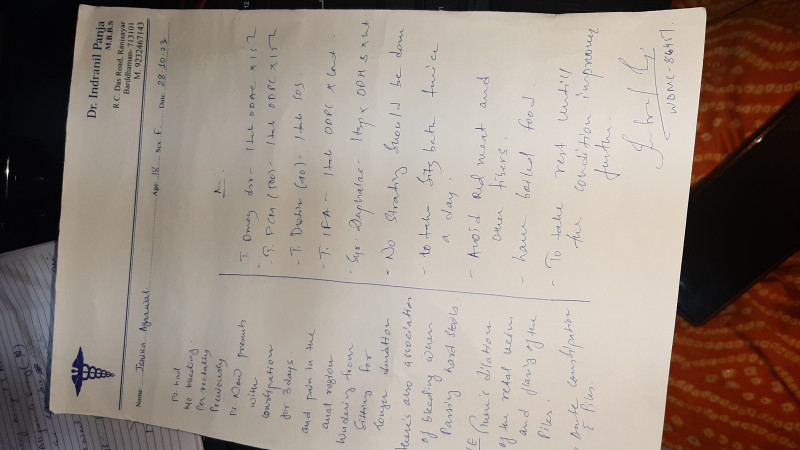 Dr. Indranil Panja
M.B.B.S
R.C. Das Road, Ranisayar
Bardhaman- 713101
M. 9232467143
Name: Agarwal Age: 18 Sex: F Date: 28.10.23
Pt had
H/o bleeding
Per rectally
Previously
Pt Now presents
with
Constipation
for 3 days.
and pain in the
anal region
hindering from
Sitting for
longer duration
there's also association
of bleeding when
Passing hard stools
(there's dilation
of the rectal vein
and of the
Piles.
constipation
piles
- T. dsr - 1 tab ODAC x 15
- T. PCM (500) - 1 tab ODPC x
- T. - 1 tab SOS
- T. IFA - 1 tab ODPC x
- Syr. Duphalac - x
- No should be done
- to take Sitz bath twice
a day.
- Avoid Red meat and
other fibers.
- have boiled food.
- To take rest until
the condition improves
further.